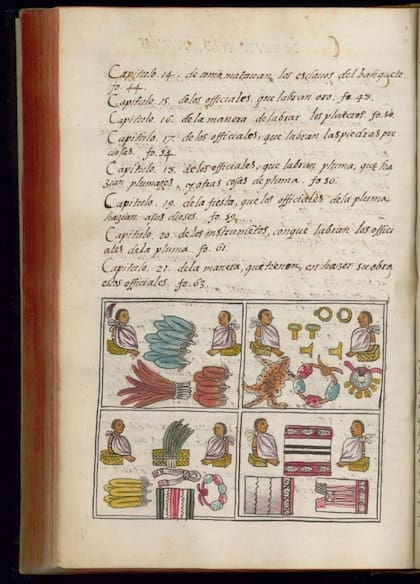 Capitulo. 14. de como matauan los esclauos del banquete.
fo. 44.
Capitulo. 15. delos officiales, que labran oro. fo. 48.
Capitulo. 16. de la manera de labrar los plateros. fo. 50.
Capitulo. 17. de los officiales, que labran las piedras pre
ciosas. fo. 54.
Capitulo. 18. de los officiales, que labran pluma, que ha
zian plumajes, y otras cosas de pluma. fo. 56.
Capitulo. 19. de la fiesta, que los officiales de la pluma
hazian a sus dioses. fo. 59.
Capitulo. 20. de los instrumetos, conque labran los offici
ales de la pluma. fo. 61.
Capitulo. 21. de la manera, que tienen, en hazer su obra
estos officiales. fo. 63.